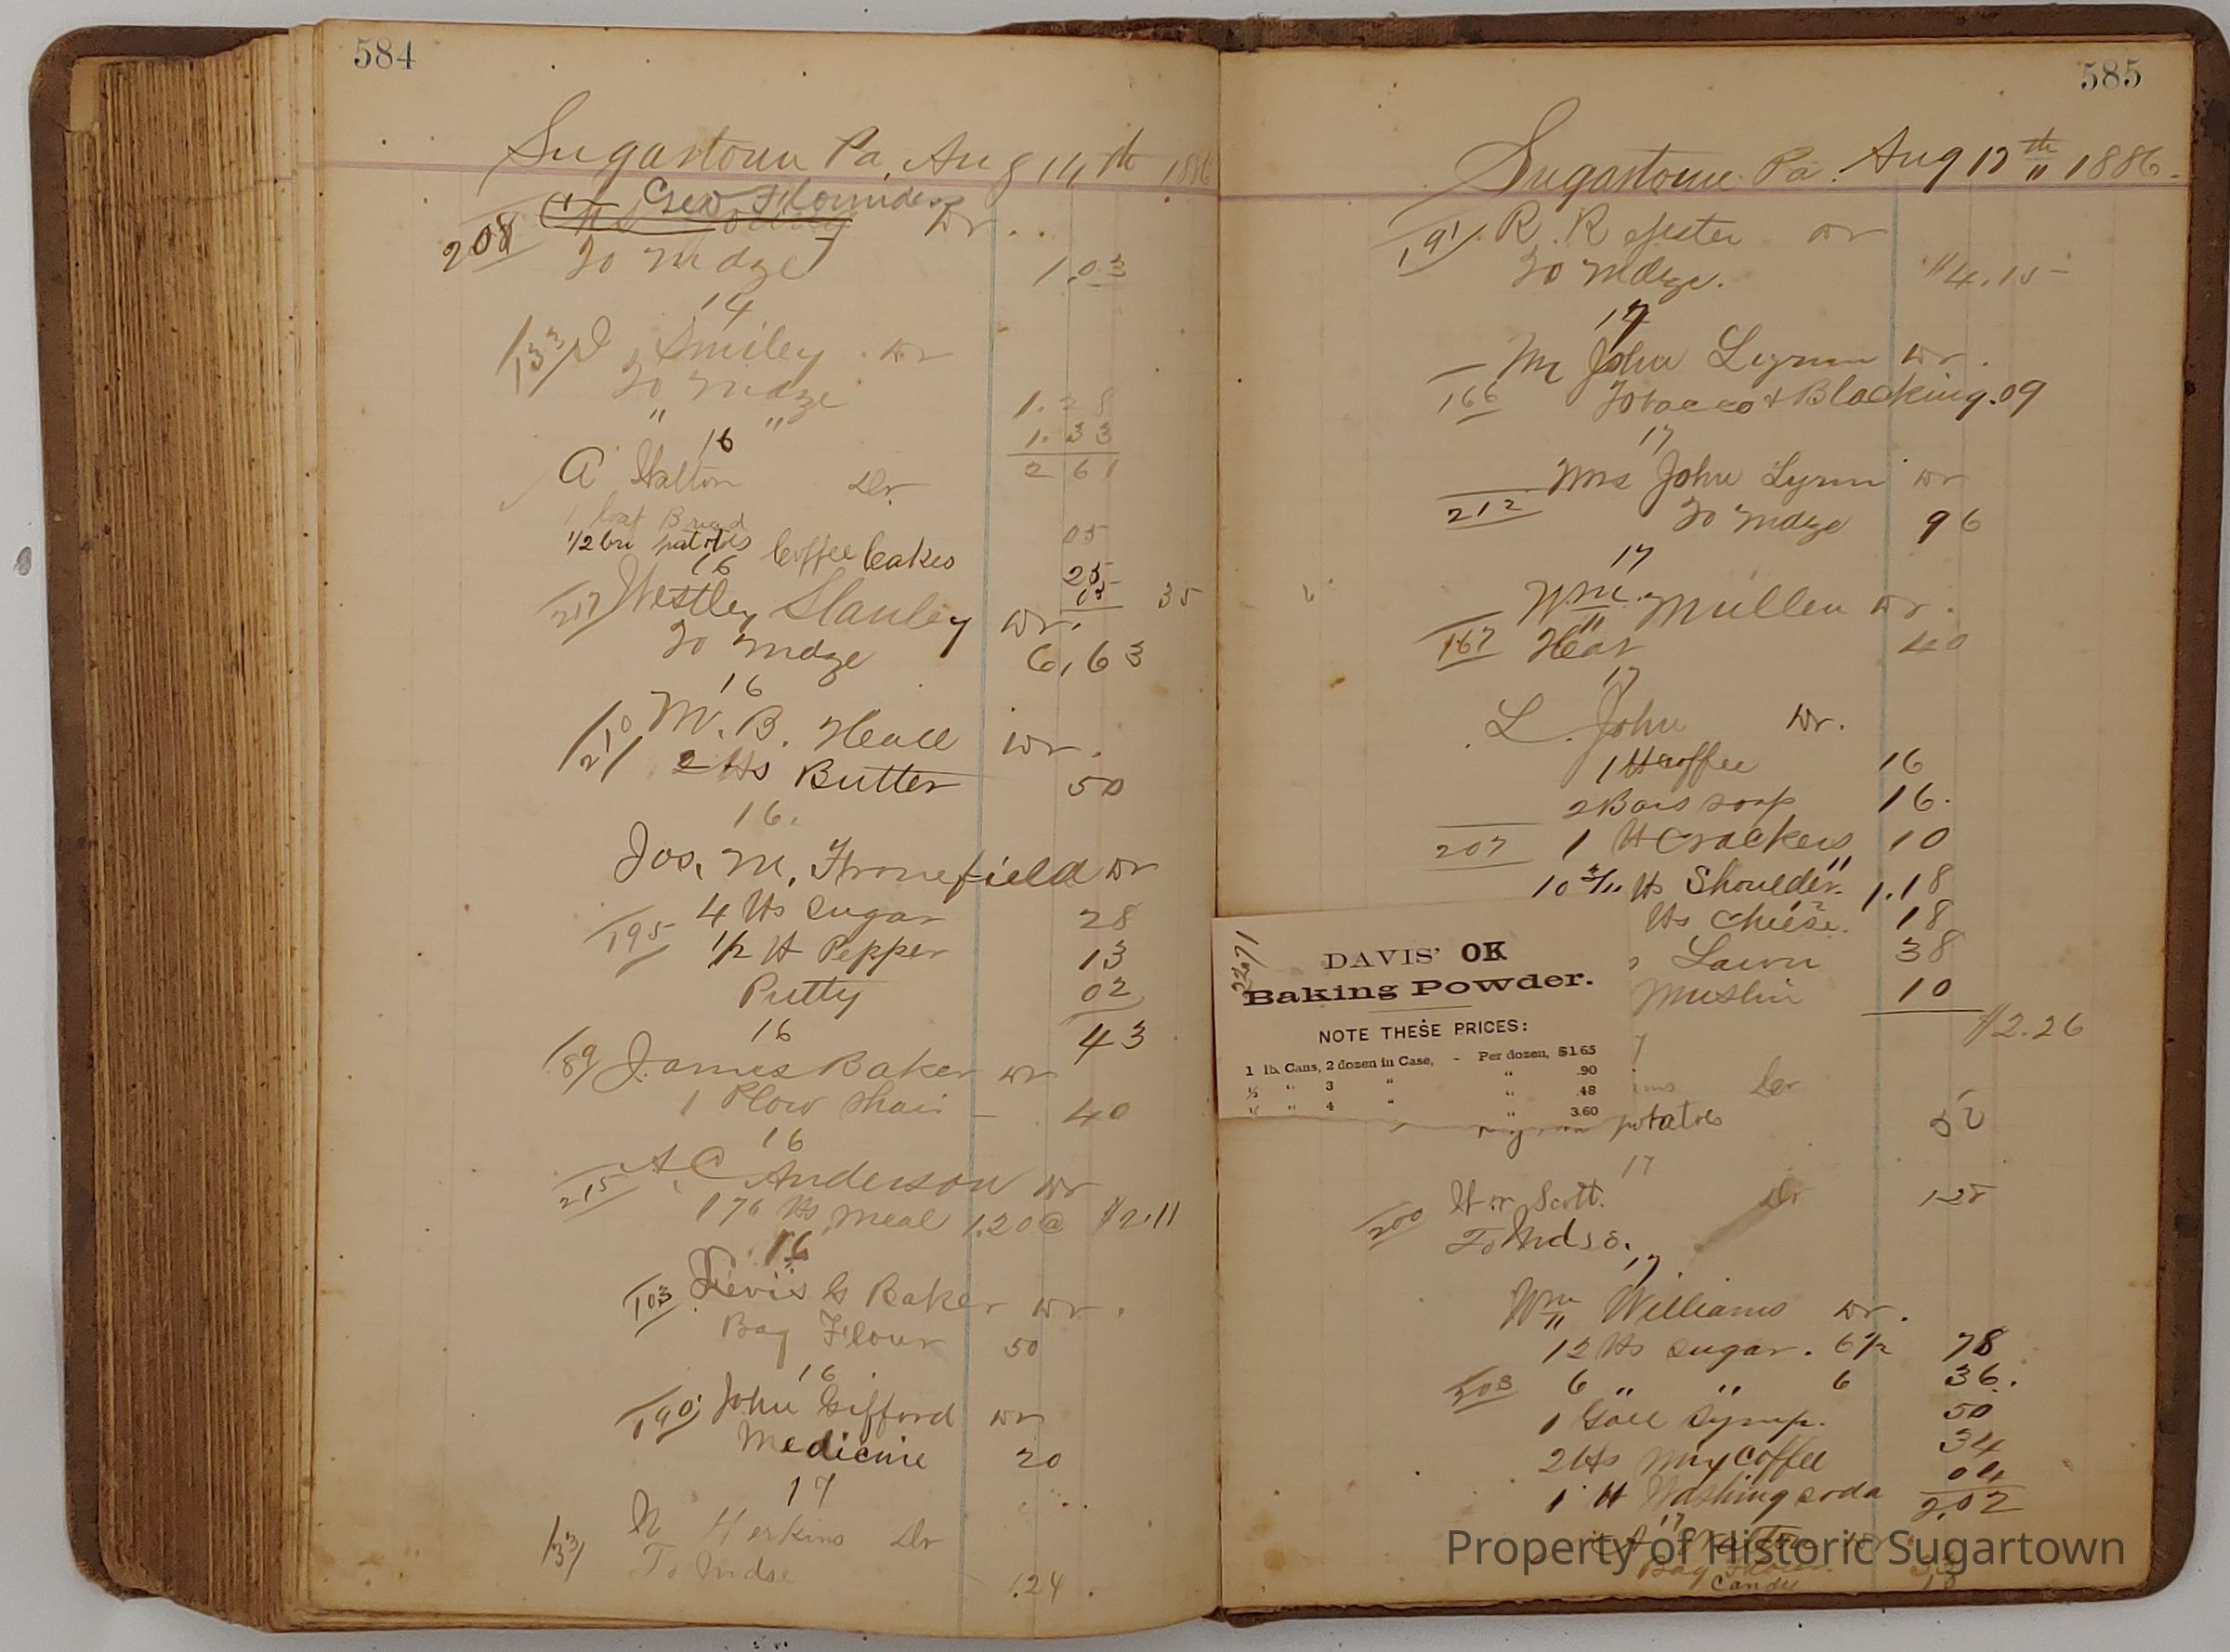 584
Sugartown Pa, Aug 14th 1886
Geo
208 Dr.
To Mdze 1.03
14
133 Smiley Dr
To Mdze 1.28
" " 1.33
2 61
16
A Hatton Dr.
1 loaf Bread 05
1/2 bu potatoes Coffee Cakes 25
05 35
16
217 Westley Stanley Dr.
To Mdze 6,63
16
210 M. B. Heall Dr.
2 lbs Butter 50
16.
Jos. M. Fronefield Dr
4 lbs Sugar 28
195 1/2 lb Pepper 13
Putty 02
43
16
189 James Baker Dr
1 Plow Shair 40
16
215 A. C Anderson Dr
176 lbs Meal 1.20@ $2.11
16
103 Levis G Baker Dr.
Bag Flour 50
16
190 John Gifford Dr
Medicine 20
17
133 N Herkins Dr
To Mdse .24
585
Sugartown Pa. Aug 17th 1886.
191 R. R Jester Dr
To Mdze. $4.15
17
Mr John Lynn Dr.
166 Tobacco & Blacking .09
17
Mrs John Lynn Dr
212 To Mdze 96
17
Wm. Mullen Dr.
167 40
17
L. John Dr.
1 lb Coffee 16
2 Bars soap 16.
207 1 lb Crackers 10
lbs Shoulder 11 1.18
lbs Cheese 12 18
Lawn 38
Muslin 10
$2.26
2271
DAVIS' OK
Baking Powder.
NOTE THESE PRICES:
1 lb. Cans, 2 dozen in Case, - Per dozen, $1.65
½ " 3 " " .90
¼ " 4 " " .48
" 3.60
Dr
potatoes 50
17
Scott. Dr 1.25
200 To Mdse.
17
Wm Williams Dr.
12 lbs Sugar. 6½ 78
203 6 " " 6 36.
1 Gall Syrup. 50
2 lbs Coffee 34
1 lb Washing soda 04
2.02
17
A Hatton Dr
Bag Flour
Candy
Property of Historic Sugartown